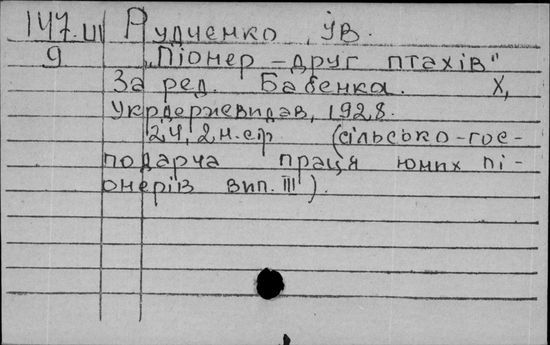 147.III Рудченко, ІВ.
9 „Піонер – друг птахів"
За ред. Бабенка. Х,
Укрдержвидав, 1928.
24, 2 н. ст (сільсько-гос-
подарча праця юних пі-
онерів вип. III).